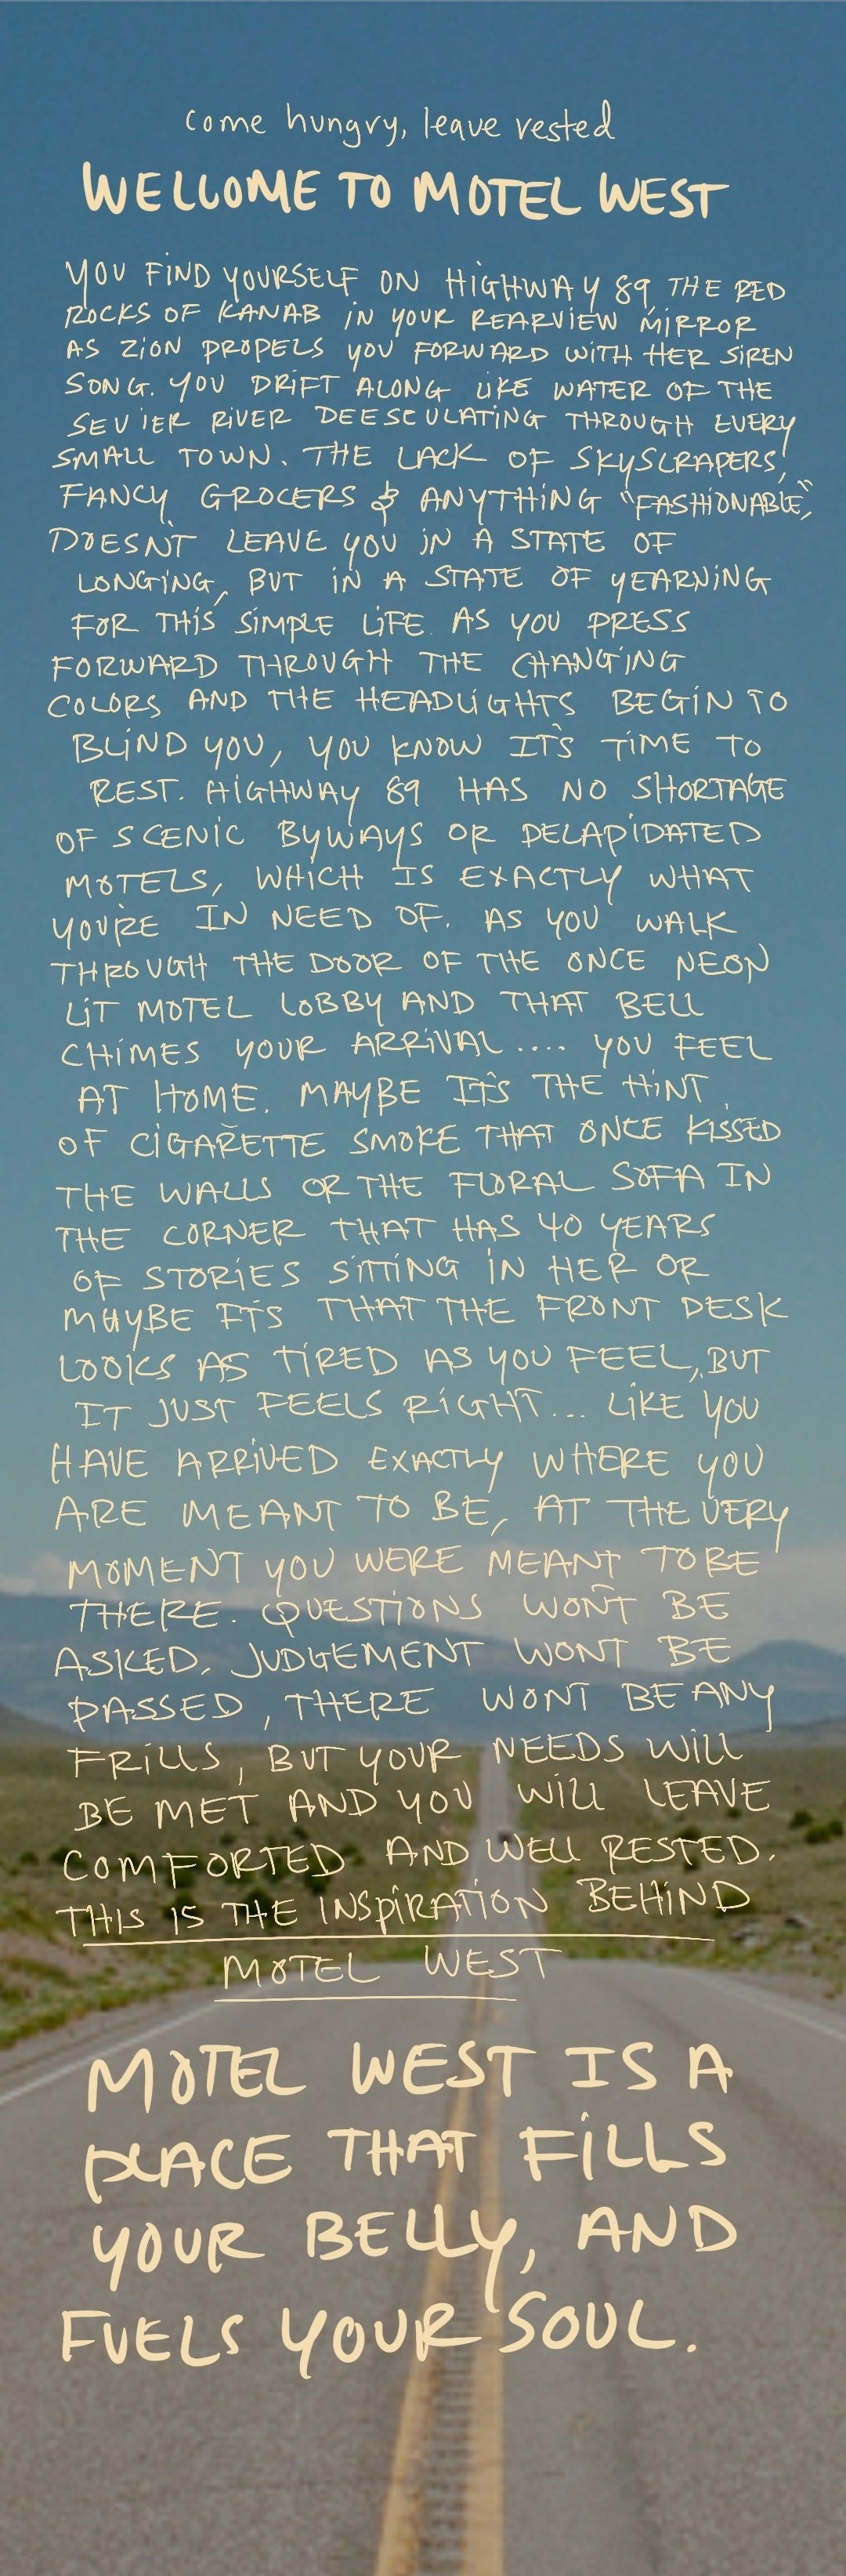 come hungry, leave rested
WELCOME TO MOTEL WEST
YOU FIND YOURSELF ON HIGHWAY 89, THE RED
ROCKS OF KANAB IN YOUR REARVIEW MIRROR
AS ZION PROPELS YOU FORWARD WITH HER SIREN
SONG. YOU DRIFT ALONG LIKE WATER OF THE
SEVIER RIVER DEESCULATING THROUGH EVERY
SMALL TOWN. THE LACK OF SKYSCRAPERS,
FANCY GROCERS & ANYTHING "FASHIONABLE",
DOESN'T LEAVE YOU IN A STATE OF
LONGING, BUT IN A STATE OF YEARNING
FOR THIS SIMPLE LIFE. AS YOU PRESS
FORWARD THROUGH THE CHANGING
COLORS AND THE HEADLIGHTS BEGIN TO
BLIND YOU, YOU KNOW IT'S TIME TO
REST. HIGHWAY 89 HAS NO SHORTAGE
OF SCENIC BYWAYS OR DELAPIDATED
MOTELS, WHICH IS EXACTLY WHAT
YOU'RE IN NEED OF. AS YOU WALK
THROUGH THE DOOR OF THE ONCE NEON
LIT MOTEL LOBBY AND THAT BELL
CHIMES YOUR ARRIVAL.... YOU FEEL
AT HOME. MAYBE IT'S THE HINT
OF CIGARETTE SMOKE THAT ONCE KISSED
THE WALLS OR THE FLORAL SOFA IN
THE CORNER THAT HAS 40 YEARS
OF STORIES SITTING IN HER OR
MAYBE IT'S THAT THE FRONT DESK
LOOKS AS TIRED AS YOU FEEL, BUT
IT JUST FEELS RIGHT... LIKE YOU
HAVE ARRIVED EXACTLY WHERE YOU
ARE MEANT TO BE, AT THE VERY
MOMENT YOU WERE MEANT TO BE
THERE. QUESTIONS WON'T BE
ASKED, JUDGEMENT WONT BE
PASSED, THERE WONT BE ANY
FRILLS, BUT YOUR NEEDS WILL
BE MET AND YOU WILL LEAVE
COMFORTED AND WELL RESTED.
THIS IS THE INSPIRATION BEHIND
MOTEL WEST
MOTEL WEST IS A
PLACE THAT FILLS
YOUR BELLY, AND
FUELS YOUR SOUL.